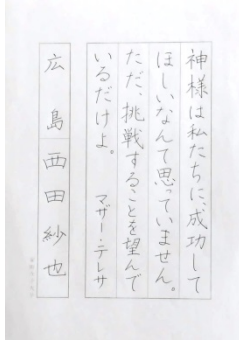 神様は私たちに、成功して
ほしいなんて思っていません。
ただ、挑戦することを望んで
いるだけよ。
マザー・テレサ
広島西田紗也